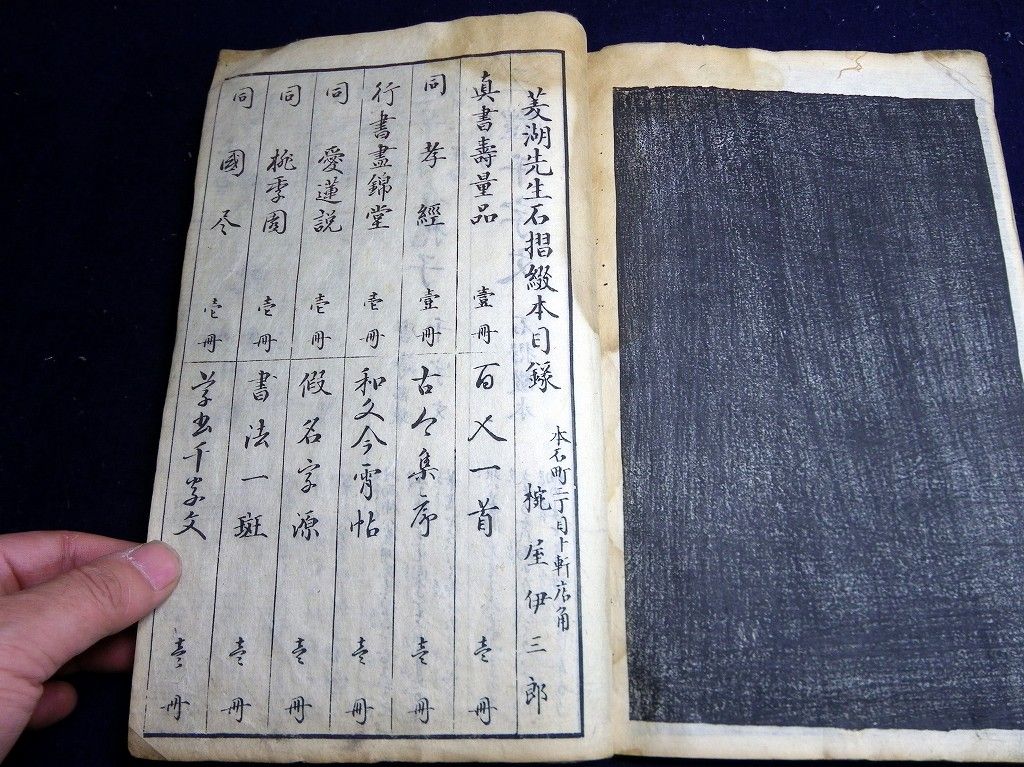 菱湖先生石摺綴本目錄
本石町二丁目十軒店角
椀屋伊三郎
真書壽量品 壹冊
同孝經 壹冊
行書晝錦堂 壱冊
同愛蓮説 壱冊
同桃李園 壱冊
同國尽 壱冊
百人一首 壱冊
古今集序 壱冊
和文今宵帖 壱冊
假名字源 壱冊
書法一斑 壱冊
草書千字文 壱冊